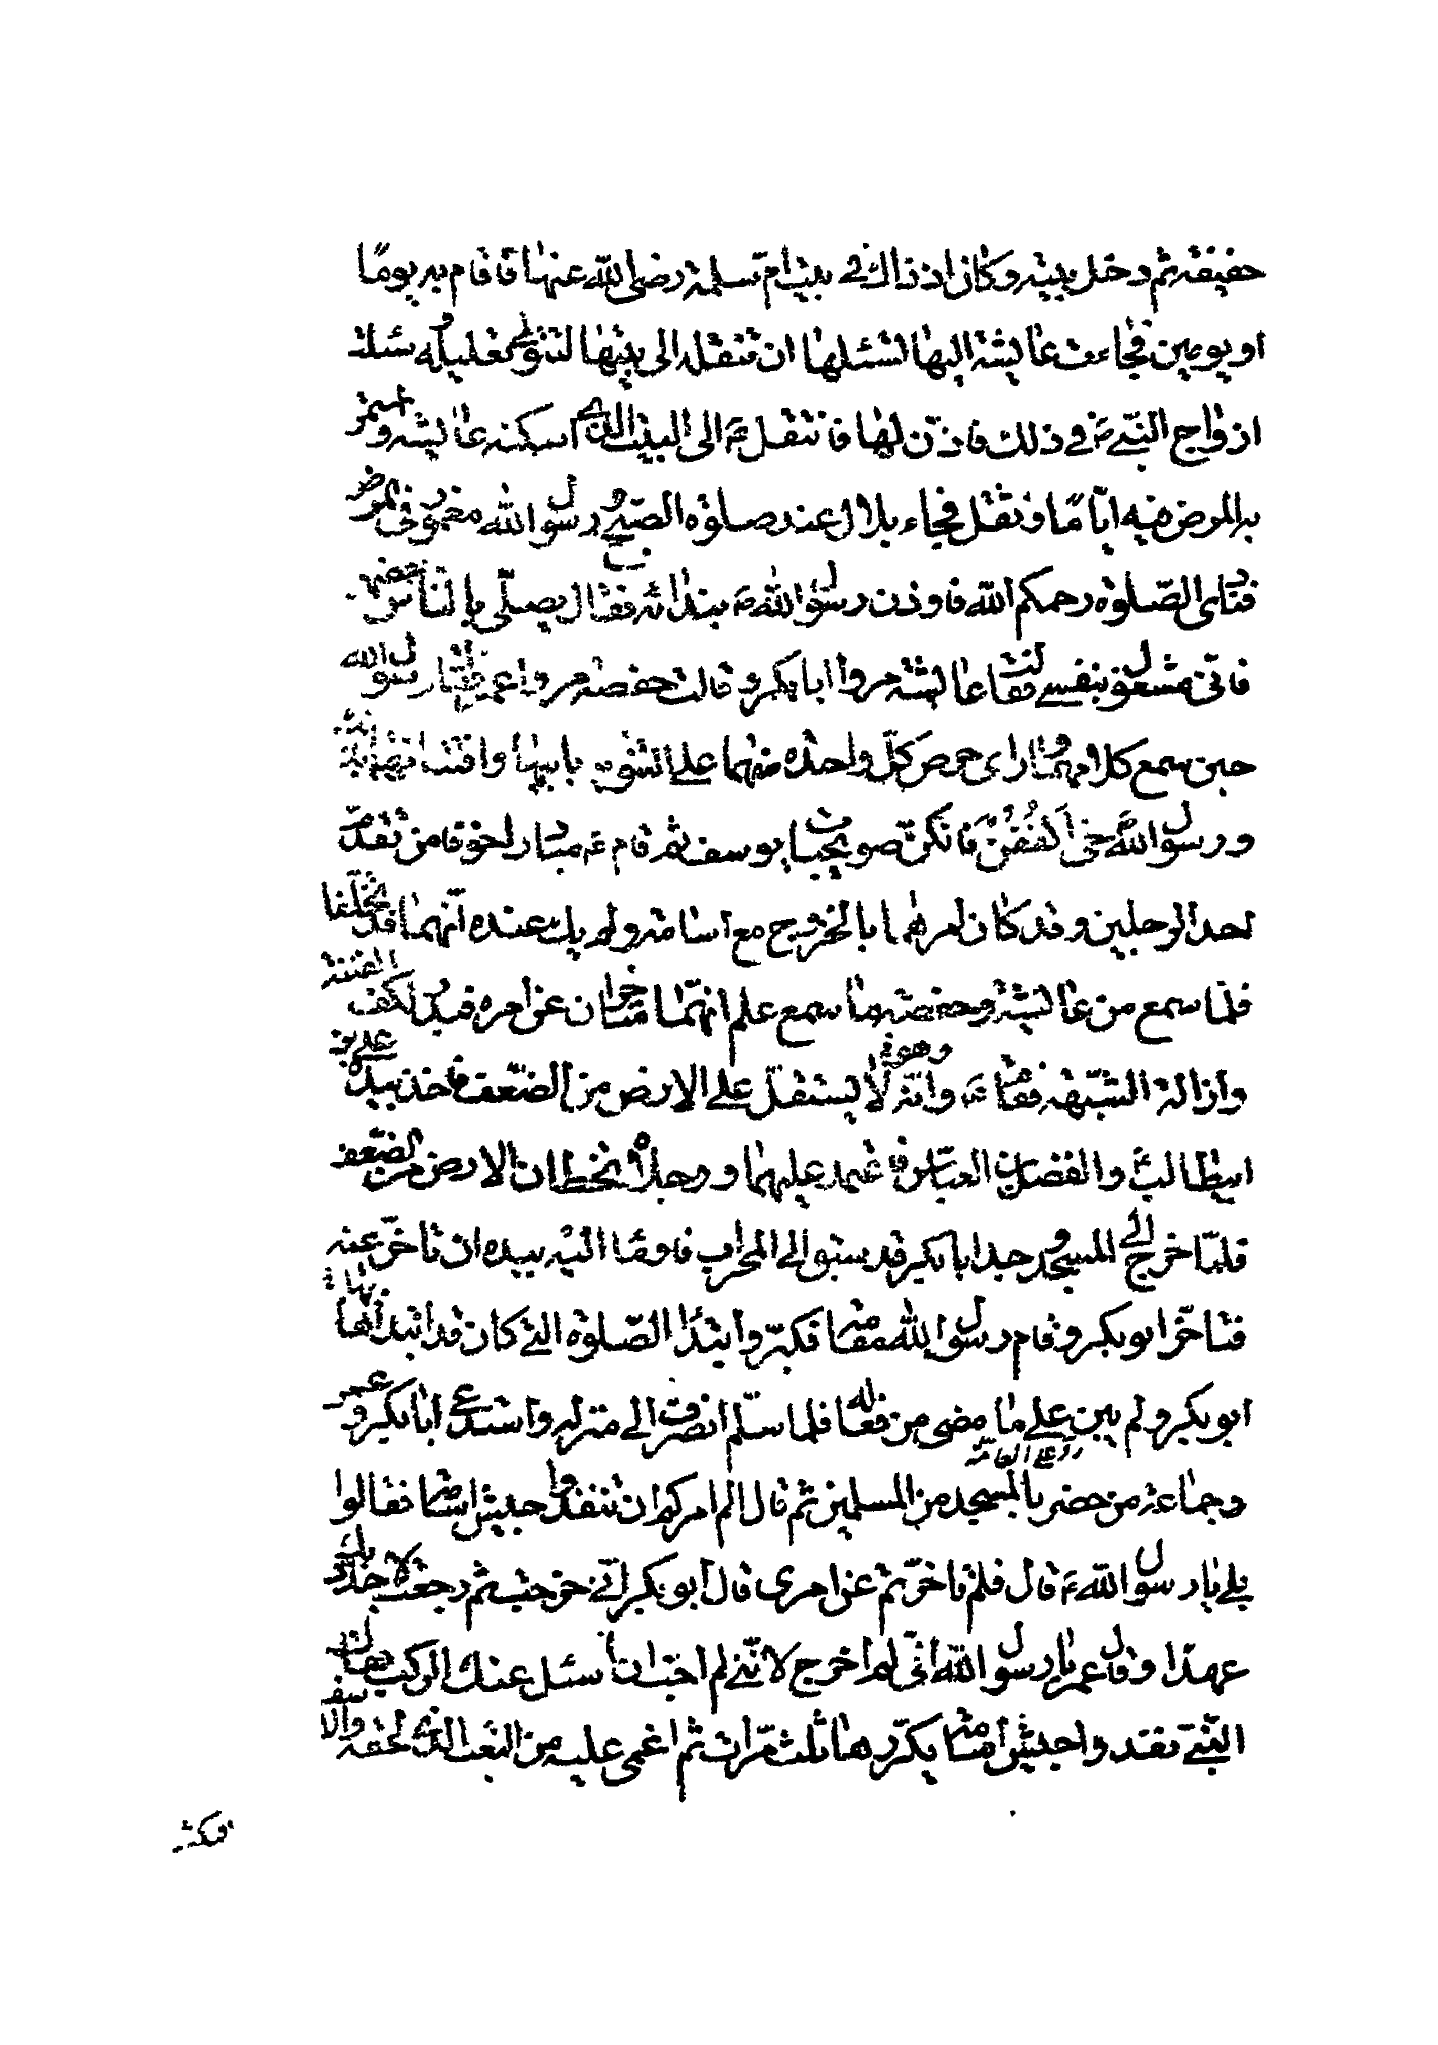 خفيفة ثم دخل بيته وكان اذ ذاك في بيت ام سلمة رضي الله عنها فاقام به يومًا
او يومين فجاءت عايشة اليها تسئلها ان تنقله الى بيتها لتتولى تعليله وسئلت
ازواج النبي ص في ذلك فاذنّ لها فانتقل ص الى البيت الذي اسكنه عايشة واستمر
به المرض فيه ايّامًا وثقل فجاء بلال عند صلوة الصبح ورسول الله مغمور في المرض
فنادى الصّلوة رحمكم الله فاوذن رسول الله ص بندائه فقال يصلّي بالناس بعضهم
فانّي مشغول بنفسي فقالت عايشة مروا ابابكر وقالت حفصة مروا عمر فقال رسول الله
حين سمع كلامهما وراى حرص كلّ واحدة منهما على التنويه بابيها وافتتانهما بذلك
ورسول الله حيّ اكففن فانكنّ صويحبات يوسف ثم قام ع مبادرا خوفا من تقدّم
احد الرجلين وقد كان امرهما بالخروج مع اسامة ولم يك عنده انّهما قد تخلّفا
فلمّا سمع من عايشة وحفصة ما سمع علم انهّما متاخران عن امره فبدر لكف الفتنة
وازالة الشبّهة فقام ع وانّه لا يستقلّ على الارض من الضّعف وهو في فاخذ بيده علي بن
ابيطالب والفضل بن العباس فاعتمد عليهما ورجلاه تخطان الارض من الضّعف
فلمّا خرج الى المسجد وجد ابابكر قد سبق الى المحراب فاومأ اليه بيده ان تاخّر عنه
فتاخّر ابوبكر وقام رسول الله مقامه فكبّر وابتدأ الصّلوة التي كان قد ابتدأ بها
ابوبكر ولم يبن على ما مضى من فعاله فلما سلّم انصرف الى منزله واستدعى ابابكر وعمر
وجماعة من حضر بالمسجد من المسلمين ثم قال الم امركم ان تنفذوا جيش اسامة فقالوا
بلى يا رسول الله ع قال فلم تاخّرتم عن امري قال ابوبكر انّي خرجت ثم رجعت لاجدّد بك
عهدًا وقال عمر يا رسول الله انّي لم اخرج لانّني لم احبّ ان اسئل عنك الركب فقال
النّبيّ نفذوا جيش اسامة يكرّرها ثلث مرّات ثم اغمي عليه من التعب الذي لحقه والاسف
فمكث